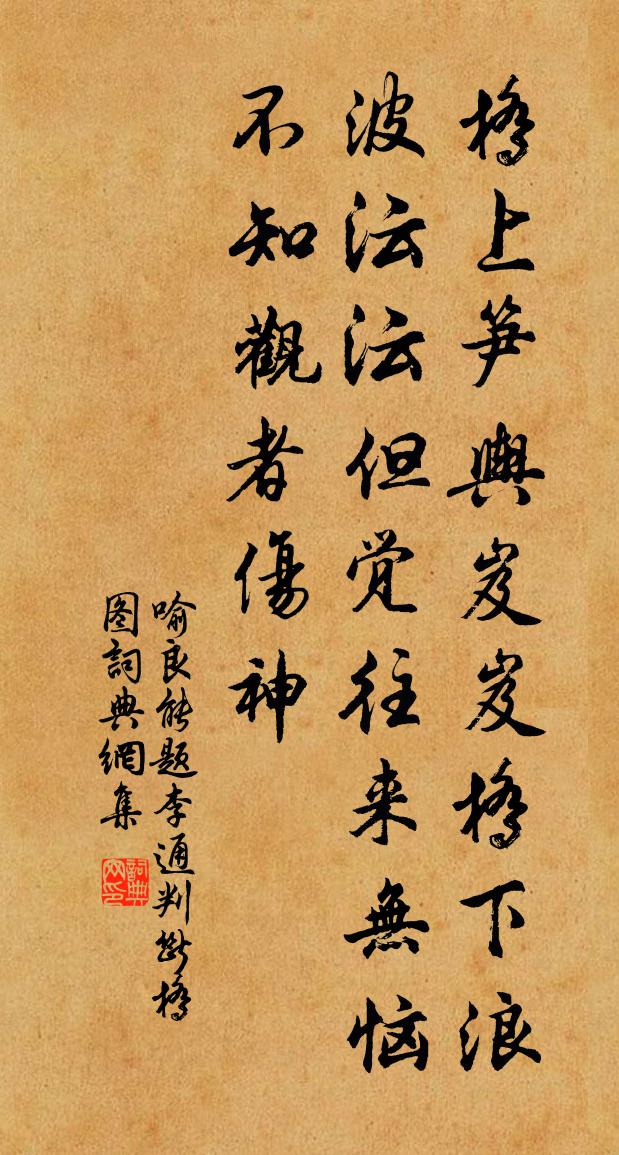 橋上笋輿岌岌橋下浪
波沄沄但觉往来無恼
不知觀者傷神
喻良能题李通判断橋
图詞典網集
詞典
网印